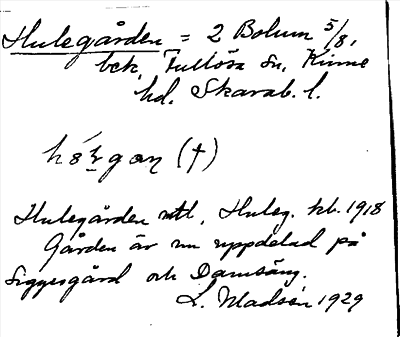 Hulegården = 2 Bolum 5/8,
bck, Fullösa sn, Kinne
hd. Skarab. l.
(†)
Hulegården mtl, Huleg. kb. 1918
Gården är nu uppdelad på
Siggesgård och Damsäng.
L. Madsén 1929